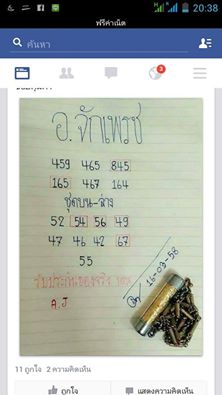 20:38
ฟรีค่าเน็ต
ค้นหา
3
อ.จักเพรช
459 465 845
165 467 164
ชุดบน-ล่าง
52 54 56 49
47 46 42 67
55
A.J
16-09-58
11 ถูกใจ 2 ความคิดเห็น
ถูกใจ
แสดงความคิดเห็น